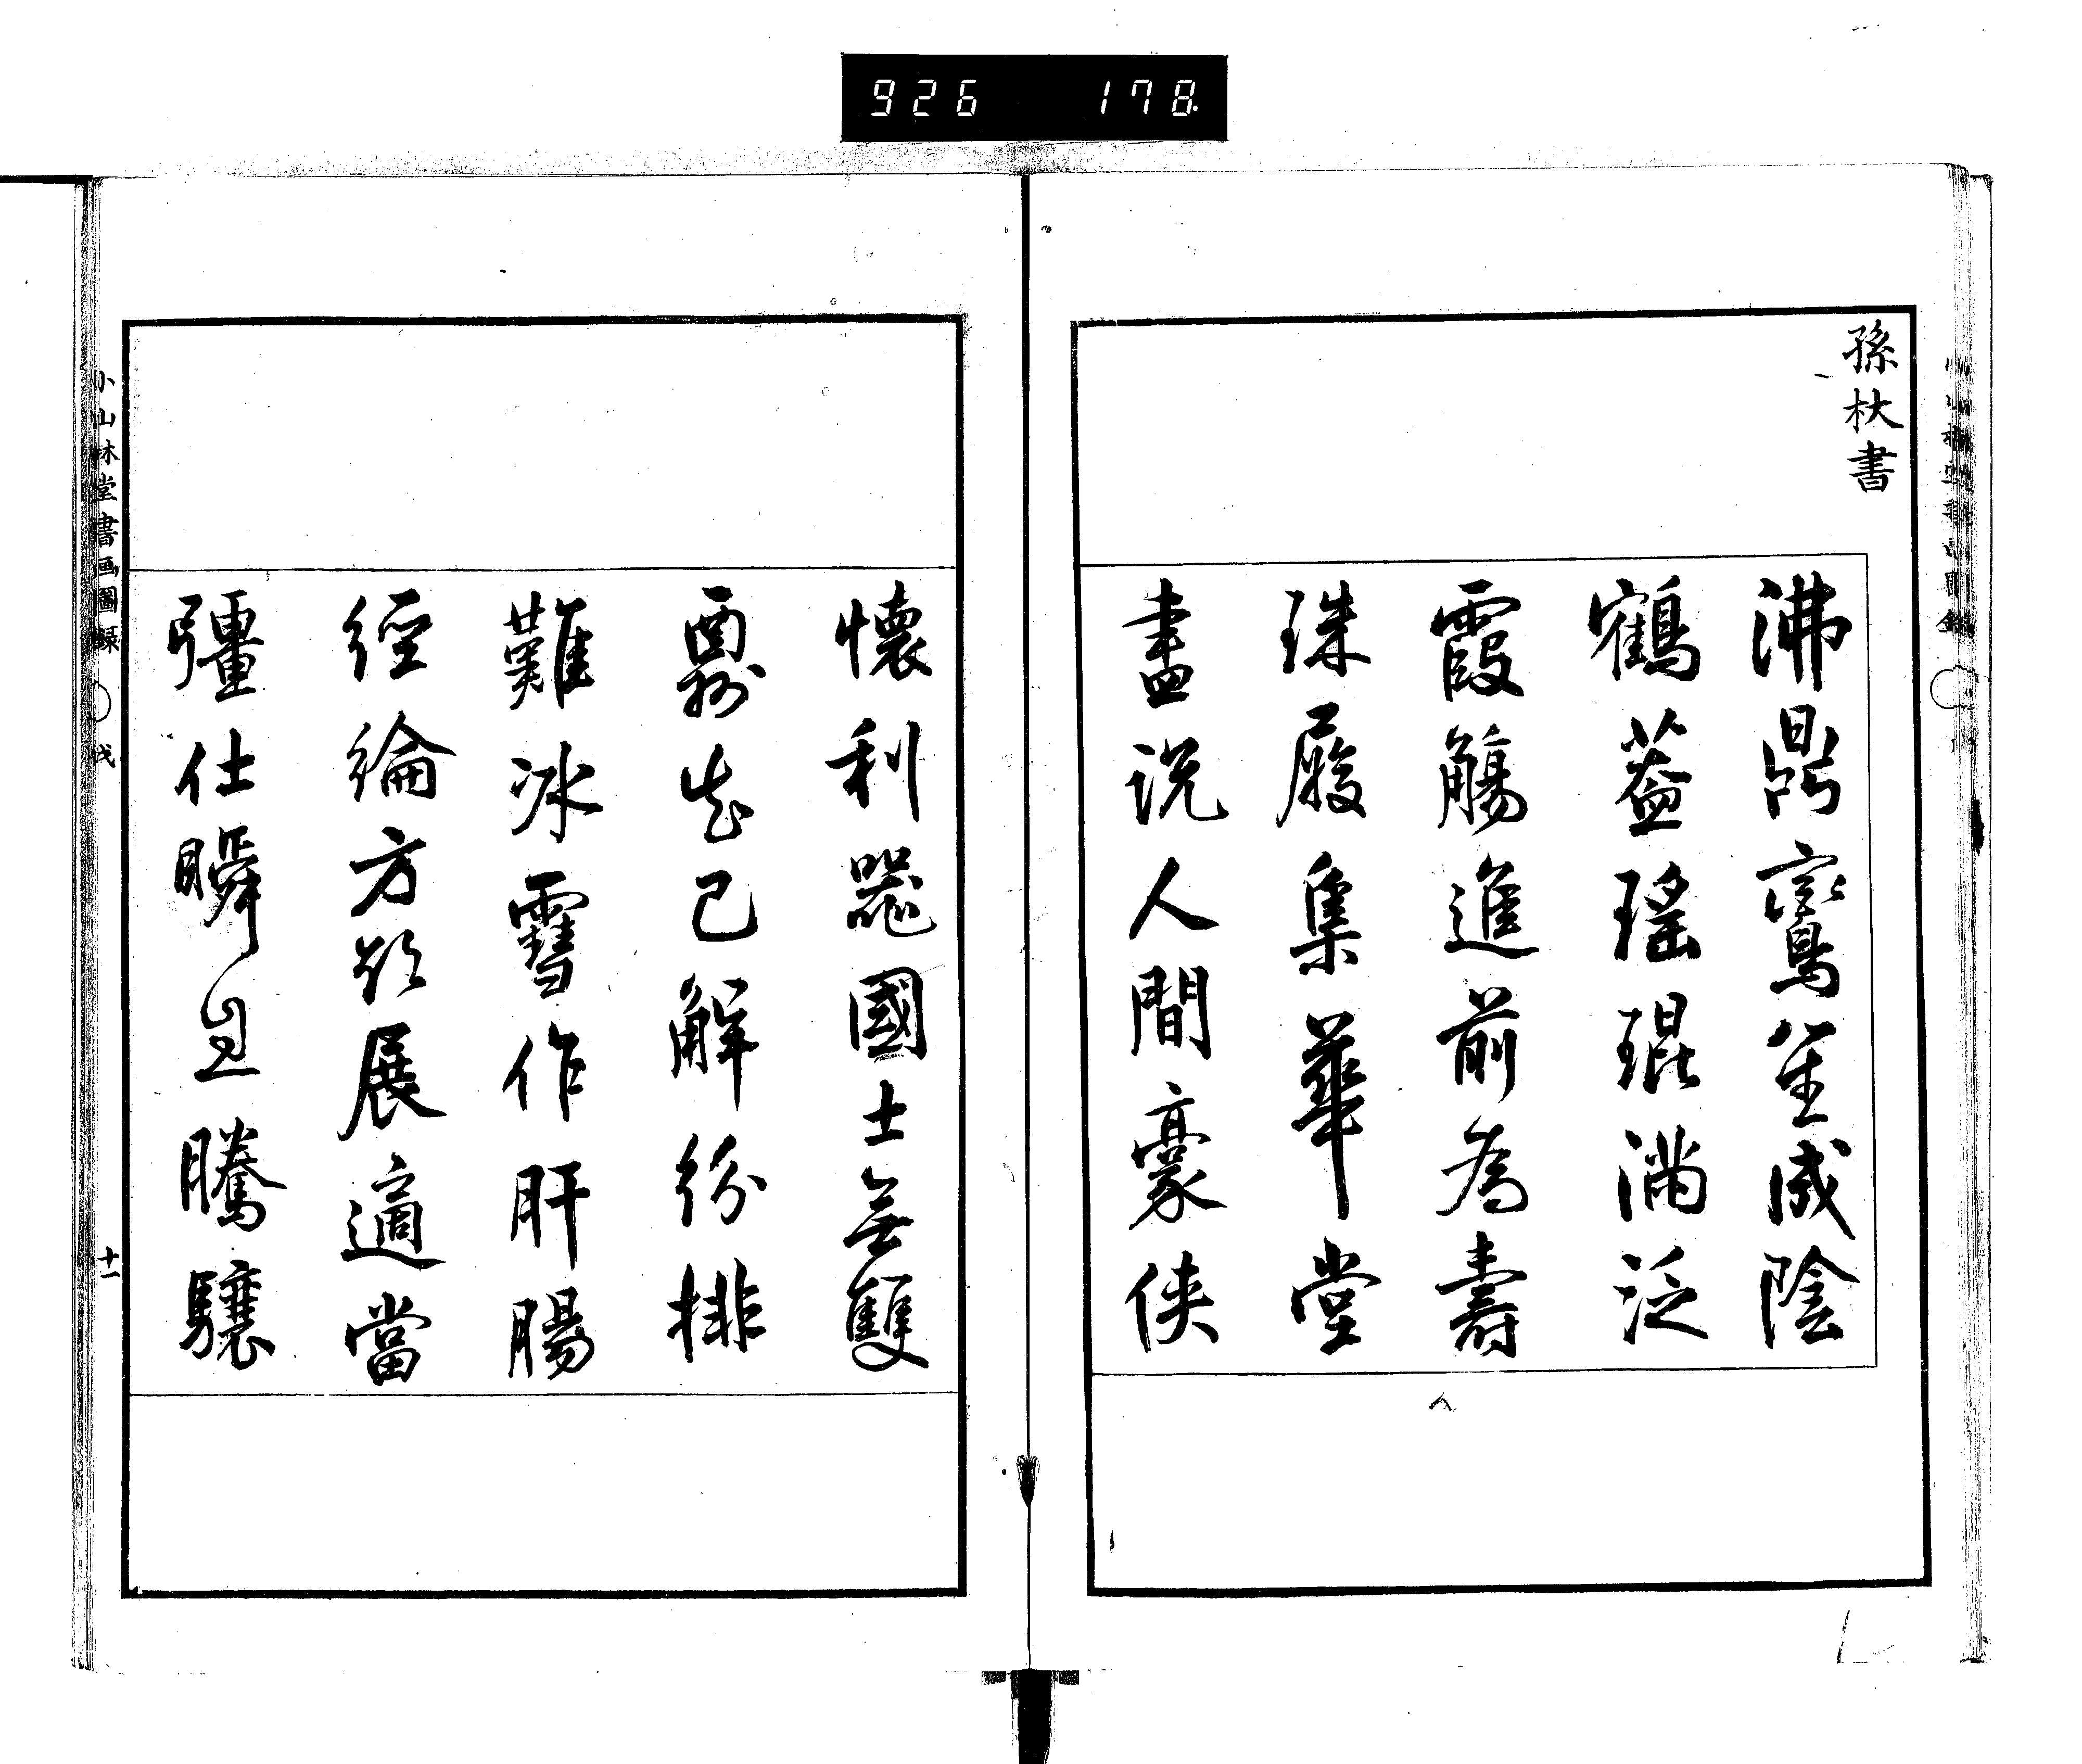 926 178
孫杕書
沸鼎鸞笙咸陰
鶴蓋瑤琨満泛
霞觴進前為壽
珠履集華堂
盡説人間豪俠
懷利器國士無雙
要知己解紛排
難冰雪作肝腸
經綸方欲展適當
彊仕瞬息騰驤
小山林堂書画圖録 戌
十一